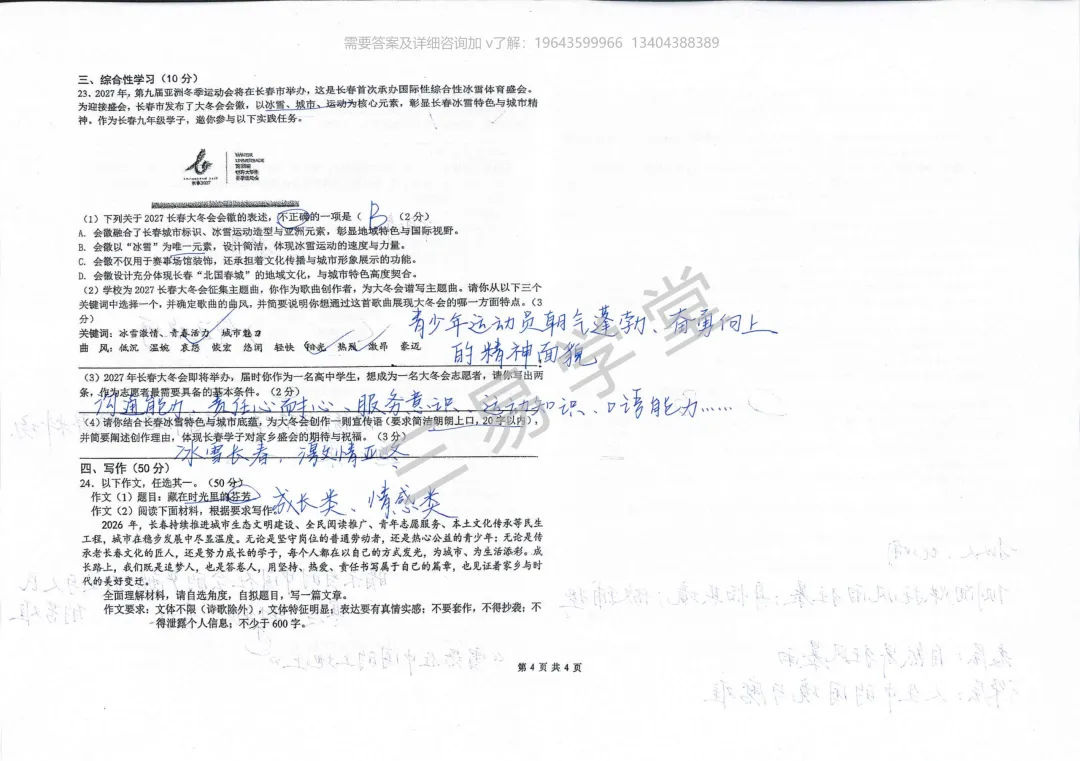 需要答案及详细咨询加 v了解：19643599966 13404388389
三、综合性学习（10 分）
23. 2027 年，第九届亚洲冬季运动会将在长春市举办，这是长春首次承办国际性综合性冰雪体育盛会。
为迎接盛会，长春市发布了大冬会会徽，以冰雪、城市、运动为核心元素，彰显长春冰雪特色与城市精
神。作为长春九年级学子，邀你参与以下实践任务。
长春2027
（1）下列关于 2027 长春大冬会会徽的表述，不正确的一项是（ B （2 分）
A. 会徽融合了长春城市标识、冰雪运动造型与亚洲元素，彰显地域特色与国际视野。
B. 会徽以“冰雪”为唯一元素，设计简洁，体现冰雪运动的速度与力量。
C. 会徽不仅用于赛事场馆装饰，还承担着文化传播与城市形象展示的功能。
D. 会徽设计充分体现长春“北国春城”的地域文化，与城市特色高度契合。
（2）学校为 2027 长春大冬会征集主题曲，你作为歌曲创作者，为大冬会谱写主题曲。请你从以下三个
关键词中选择一个，并确定歌曲的曲风，并简要说明你想通过这首歌曲展现大冬会的哪一方面特点。（3
分）
青少年运动员朝气蓬勃、奋勇向上
关键词：冰雪激情、青春活力 城市魅力
曲 风：低沉 温婉 哀怨 恢宏 悠闲 轻快 阳光 热烈 激昂 豪迈
的精神面貌
（3）2027 年长春大冬会即将举办，届时你作为一名高中学生，想成为一名大冬会志愿者，请你写出两
条，作为志愿者最需要具备的基本条件。（2 分）
沟通能力、责任心耐心、服务意识 运动知识、口语能力……
（4）请你结合长春冰雪特色与城市底蕴，为大冬会创作一则宣传语（要求简洁朗朗上口，20 字以内），
并简要阐述创作理由，体现长春学子对家乡盛会的期待与祝福。（3 分）
冰雪长春，激情亚冬
四、写作（50 分）
24. 以下作文，任选其一。（50 分）
作文（1）题目：藏在时光里的芬芳
成长类、情感类
作文（2）阅读下面材料，根据要求写作
2026 年，长春持续推进城市生态文明建设、全民阅读推广、青年志愿服务、本土文化传承等民生
工程，城市在稳步发展中尽显温度。无论是坚守岗位的普通劳动者，还是热心公益的青少年；无论是传
承老长春文化的匠人，还是努力成长的学子，每个人都在以自己的方式发光，为城市、为生活添彩。成
长路上，我们既是追梦人，也是答卷人，用坚持、热爱、责任书写属于自己的篇章，也见证着家乡与时
代的美好变迁。
全面理解材料，请自选角度，自拟题目，写一篇文章。
作文要求：文体不限（诗歌除外），文体特征明显；表达要有真情实感；不要套作，不得抄袭；不
得泄露个人信息；不少于 600 字。
第 4 页 共 4 页
三易学堂